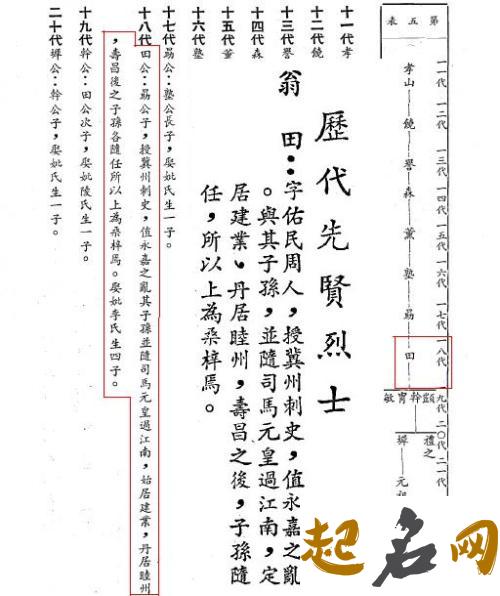 第五表
一一代 一二代 一三代 一四代 一五代 一六代 一七代 一八代 一九代 二〇代 二一代
孝山 饒 譽 森 薰 塾 易 田
顗 幹 胄 敏
禮之
樨
歷代先賢烈士
翁田：字佑民周人，授冀州刺史，值永嘉之亂
。與其子孫，並隨司馬元皇過江南，定
居建業、丹居睦州，壽昌之後，子孫隨
任，所以上為桑梓焉。
十一代孝
十二代饒
十三代譽
十四代森
十五代薰
十六代塾
十七代易公：塾公長子，娶妣氏生一子。
十八代田公：易公子，授冀州刺史，值永嘉之亂其子孫並隨司馬元皇過江南，始居建業，丹居睦州
，壽昌後之子孫各隨任所以上為桑梓焉。娶妣李氏生四子。
十九代幹公：田公次子，娶妣陵氏生一子。
二十代樨公：幹公子，娶妣氏生一子。
起名网